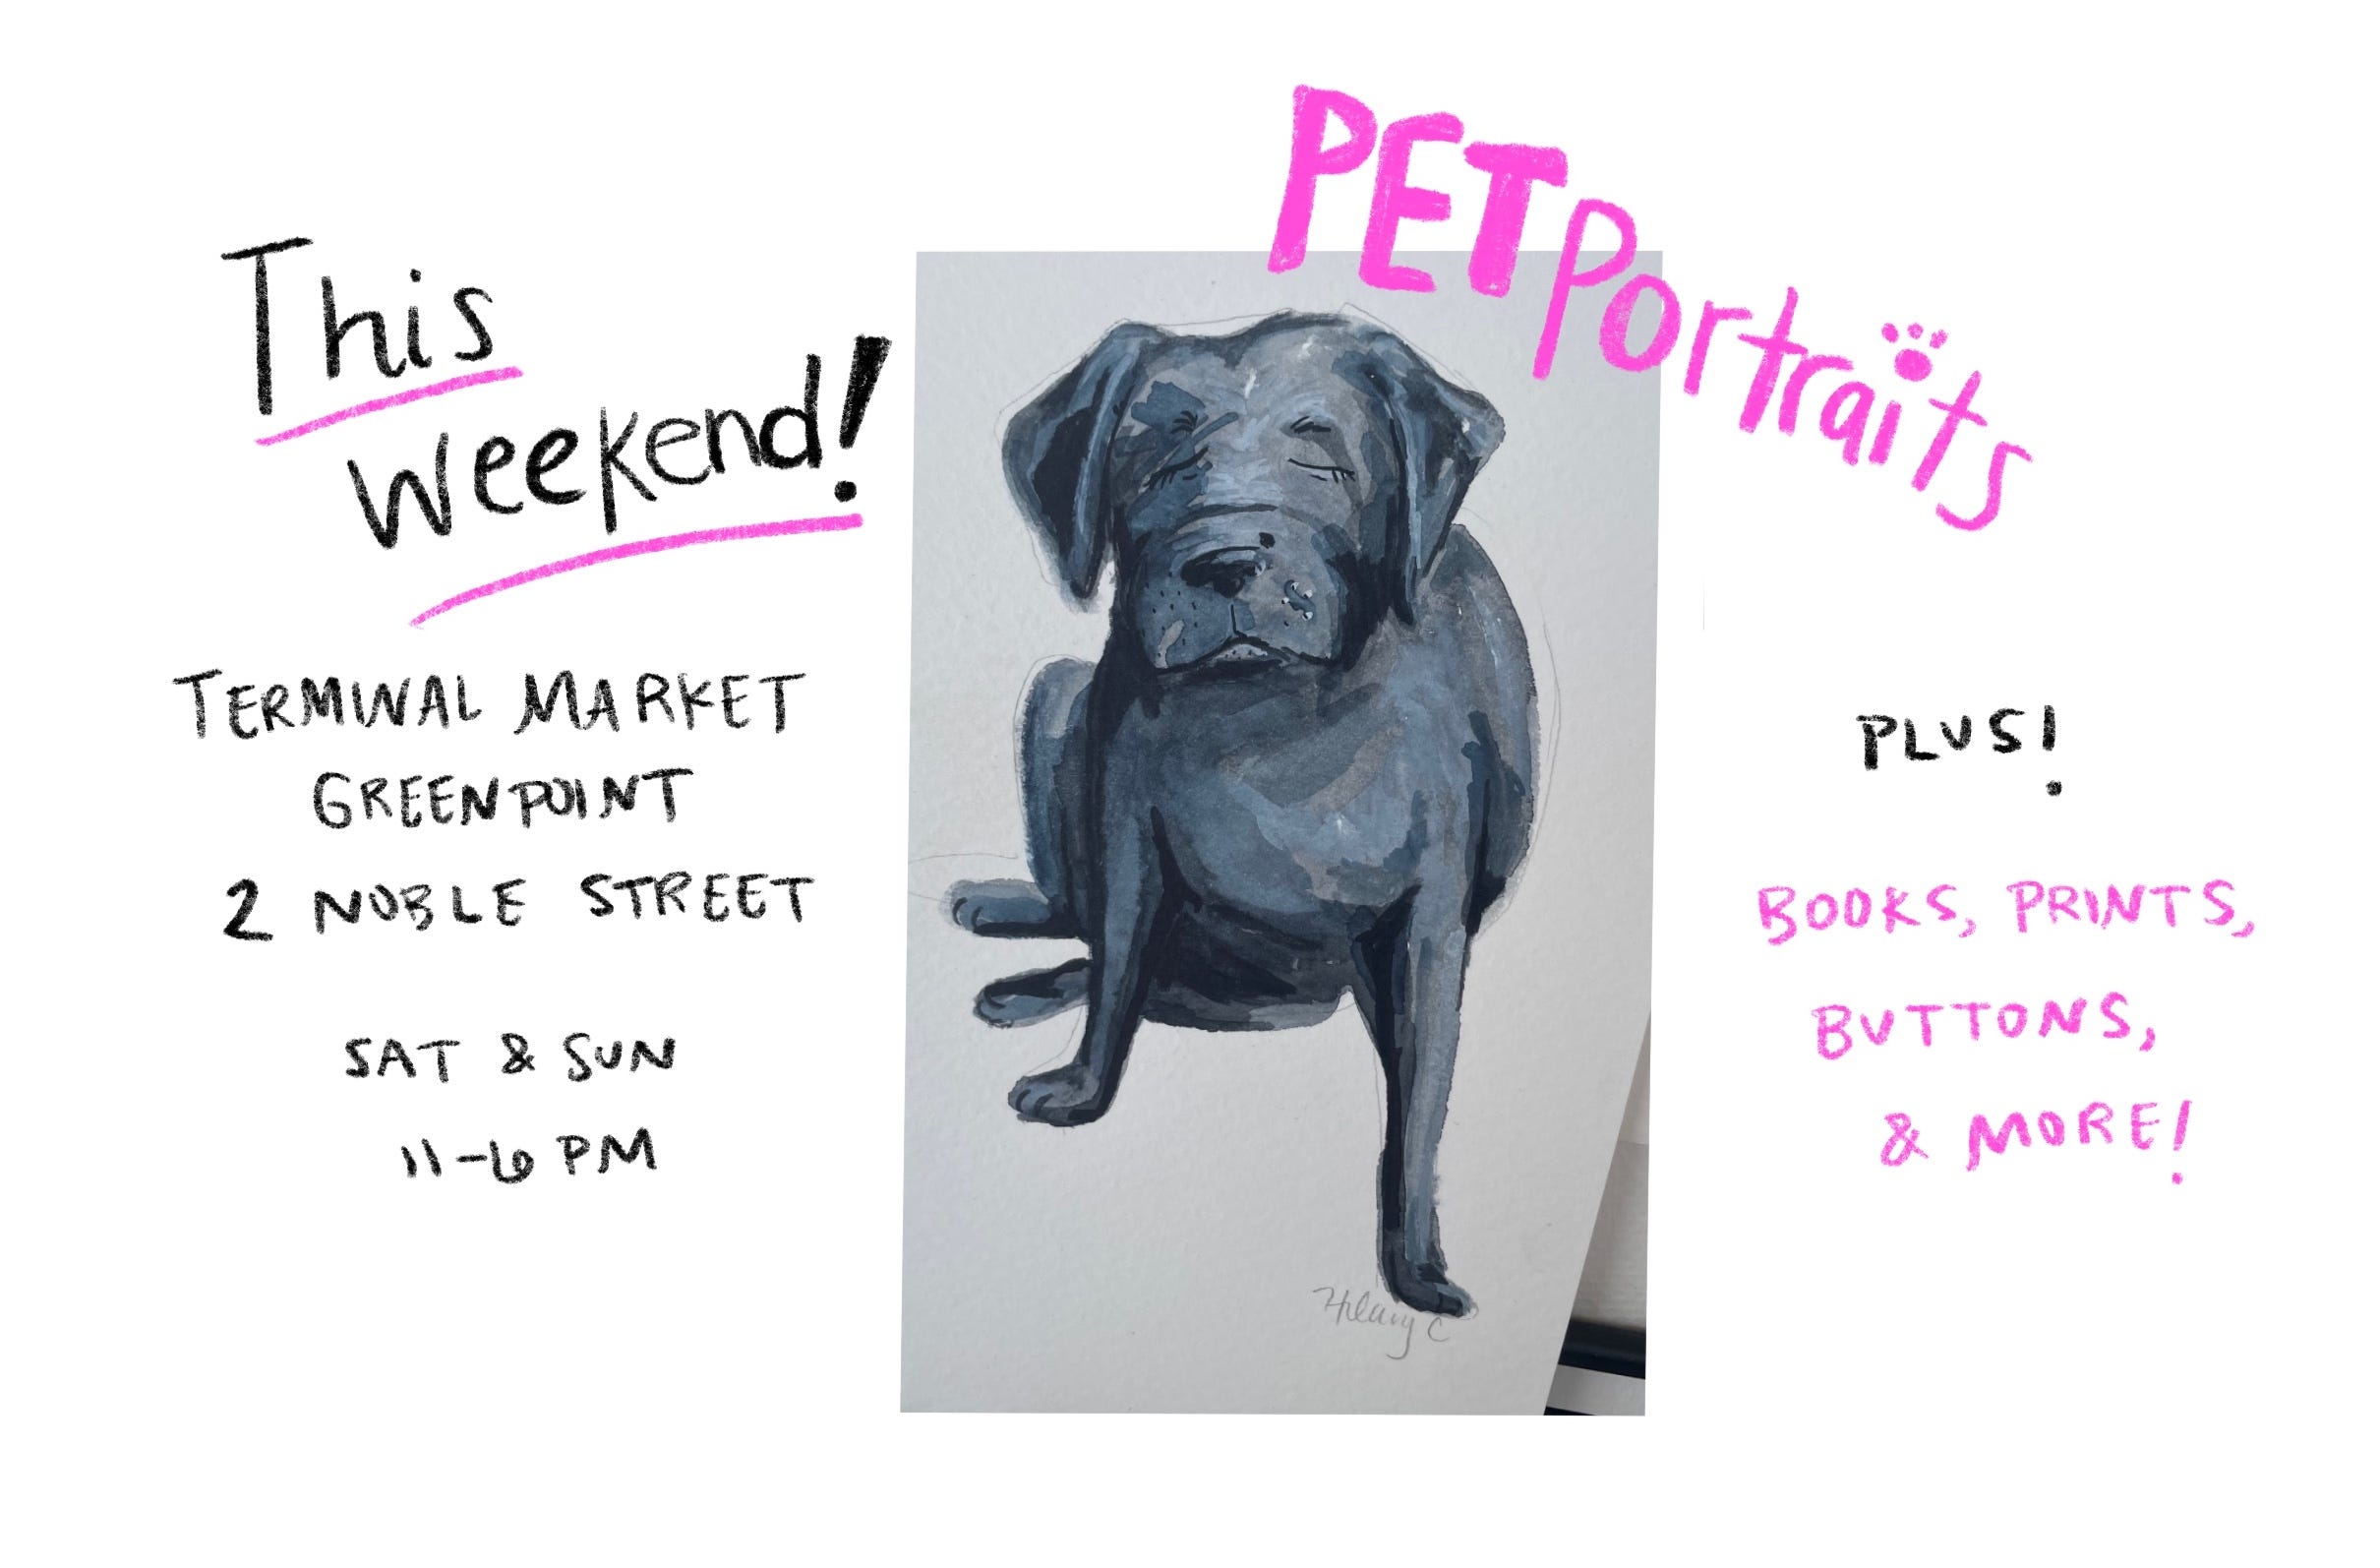 This
weekend!
TERMINAL MARKET
GREENPOINT
2 NOBLE STREET
SAT & SUN
11-6 PM
PET Portraits
PLUS!
BOOKS, PRINTS,
BUTTONS,
& MORE!
Hilary C